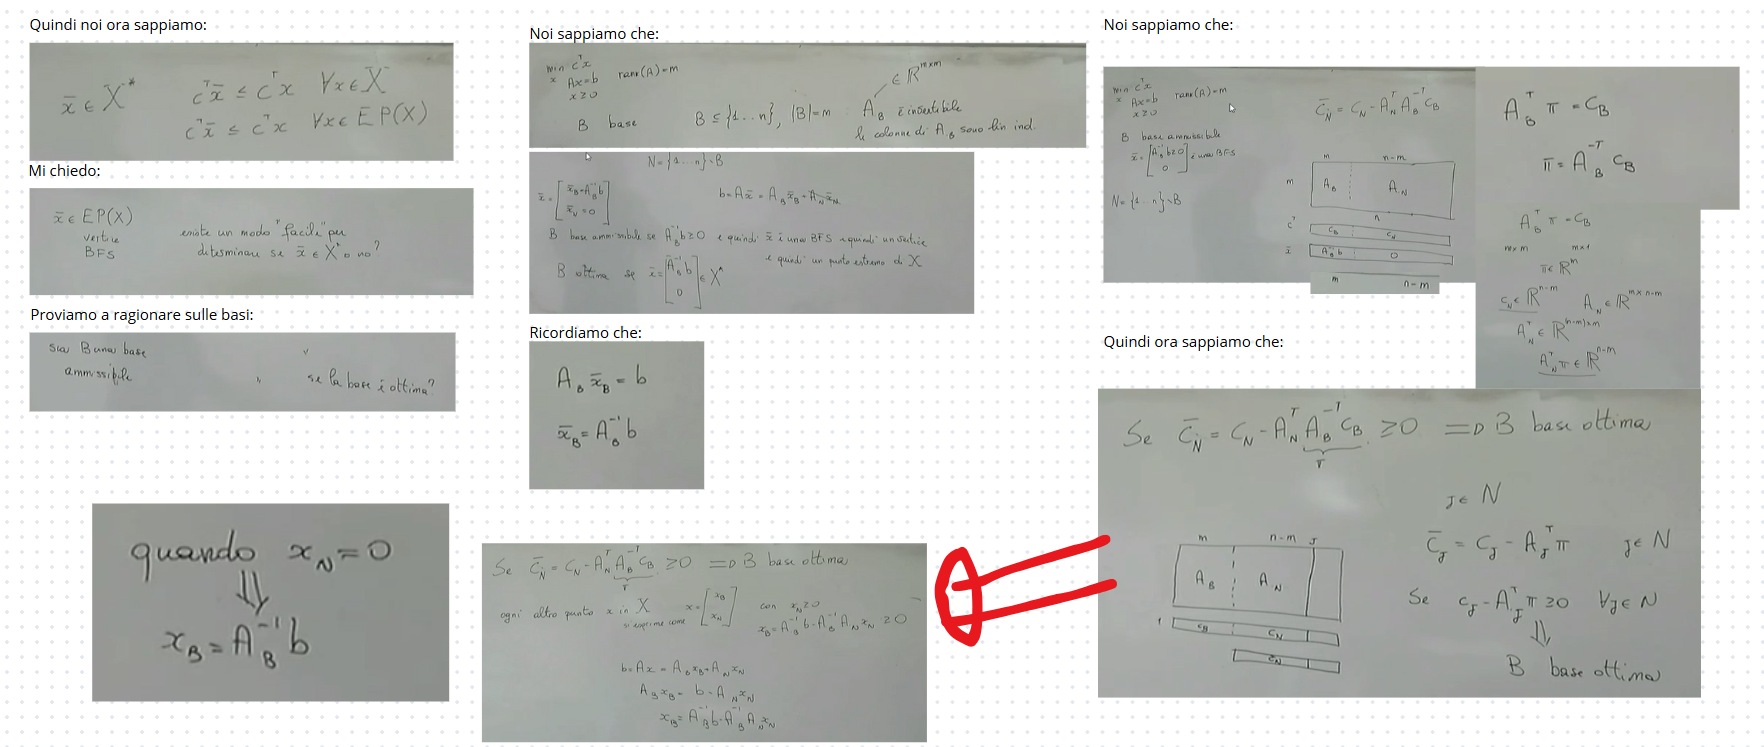 Quindi noi ora sappiamo:
x̄ ∈ X*
cᵀx̄ ≤ cᵀx ∀x∈X
cᵀx̄ ≤ cᵀx ∀x∈EP(X)
Mi chiedo:
x̄ ∈ EP(X)
vertice
BFS
esiste un modo "facile" per
determinare se x̄ ∈ X* o no?
Proviamo a ragionare sulle basi:
sia B una base
ammissibile
se la base è ottima?
quando x_N = 0
⇓
x_B = A_B⁻¹ b
Noi sappiamo che:
min cᵀx
x Ax=b rank(A)=m
x≥0
B base B ⊆ {1...n}, |B|=m : A_B è invertibile
∈ ℝ^{m×m}
le colonne di A_B sono lin ind.
N = {1...n}\B
x̄ = [x̄_B = A_B⁻¹b
x̄_N = 0]
b = Ax̄ = A_B x̄_B + A_N x̄_N
B base ammissibile se A_B⁻¹b ≥ 0 e quindi x̄ è una BFS e quindi un vertice
e quindi un punto estremo di X
B ottima se x̄ = [A_B⁻¹b
0] ∈ X*
Ricordiamo che:
A_B x̄_B = b
x̄_B = A_B⁻¹ b
Se c̄_N = c_N - A_Nᵀ A_B⁻ᵀ c_B ≥ 0 ⇒ B base ottima
π
ogni altro punto x in X
si esprime come
x = [x_B
x_N]
con x_N ≥ 0
x_B = A_B⁻¹b - A_B⁻¹ A_N x_N ≥ 0
b = Ax = A_B x_B + A_N x_N
A_B x_B = b - A_N x_N
x_B = A_B⁻¹b - A_B⁻¹ A_N x_N
Noi sappiamo che:
min cᵀx
x Ax=b rank(A)=m
x≥0
c̄_N = c_N - A_Nᵀ A_B⁻ᵀ c_B
B base ammissibile
x̄ = [A_B⁻¹b ≥0
0] è una BFS
N = {1...n}\B
m n-m
m A_B A_N
n
cᵀ c_B c_N
x̄ A_B⁻¹b 0
m n-m
A_Bᵀ π = c_B
π = A_B⁻ᵀ c_B
A_Bᵀ π = c_B
m×m m×1
π ∈ ℝ^m
c_N ∈ ℝ^{n-m} A_N ∈ ℝ^{m×n-m}
A_Nᵀ ∈ ℝ^{(n-m)×m}
A_Nᵀ π ∈ ℝ^{n-m}
Quindi ora sappiamo che:
Se c̄_N = c_N - A_Nᵀ A_B⁻ᵀ c_B ≥ 0 ⇒ B base ottima
π
j ∈ N
c̄_j = c_j - A_jᵀ π j ∈ N
Se c_j - A_jᵀ π ≥ 0 ∀j ∈ N
⇓
B base ottima
m n-m j
A_B A_N
c_B c_N
c̄_N